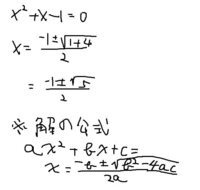 x²+x-1=0
x=\frac{-1±\sqrt{1+4}}{2}
=\frac{-1±\sqrt{5}}{2}
※解の公式
ax²+bx+c=
x=\frac{-b±\sqrt{b²-4ac}}{2a}